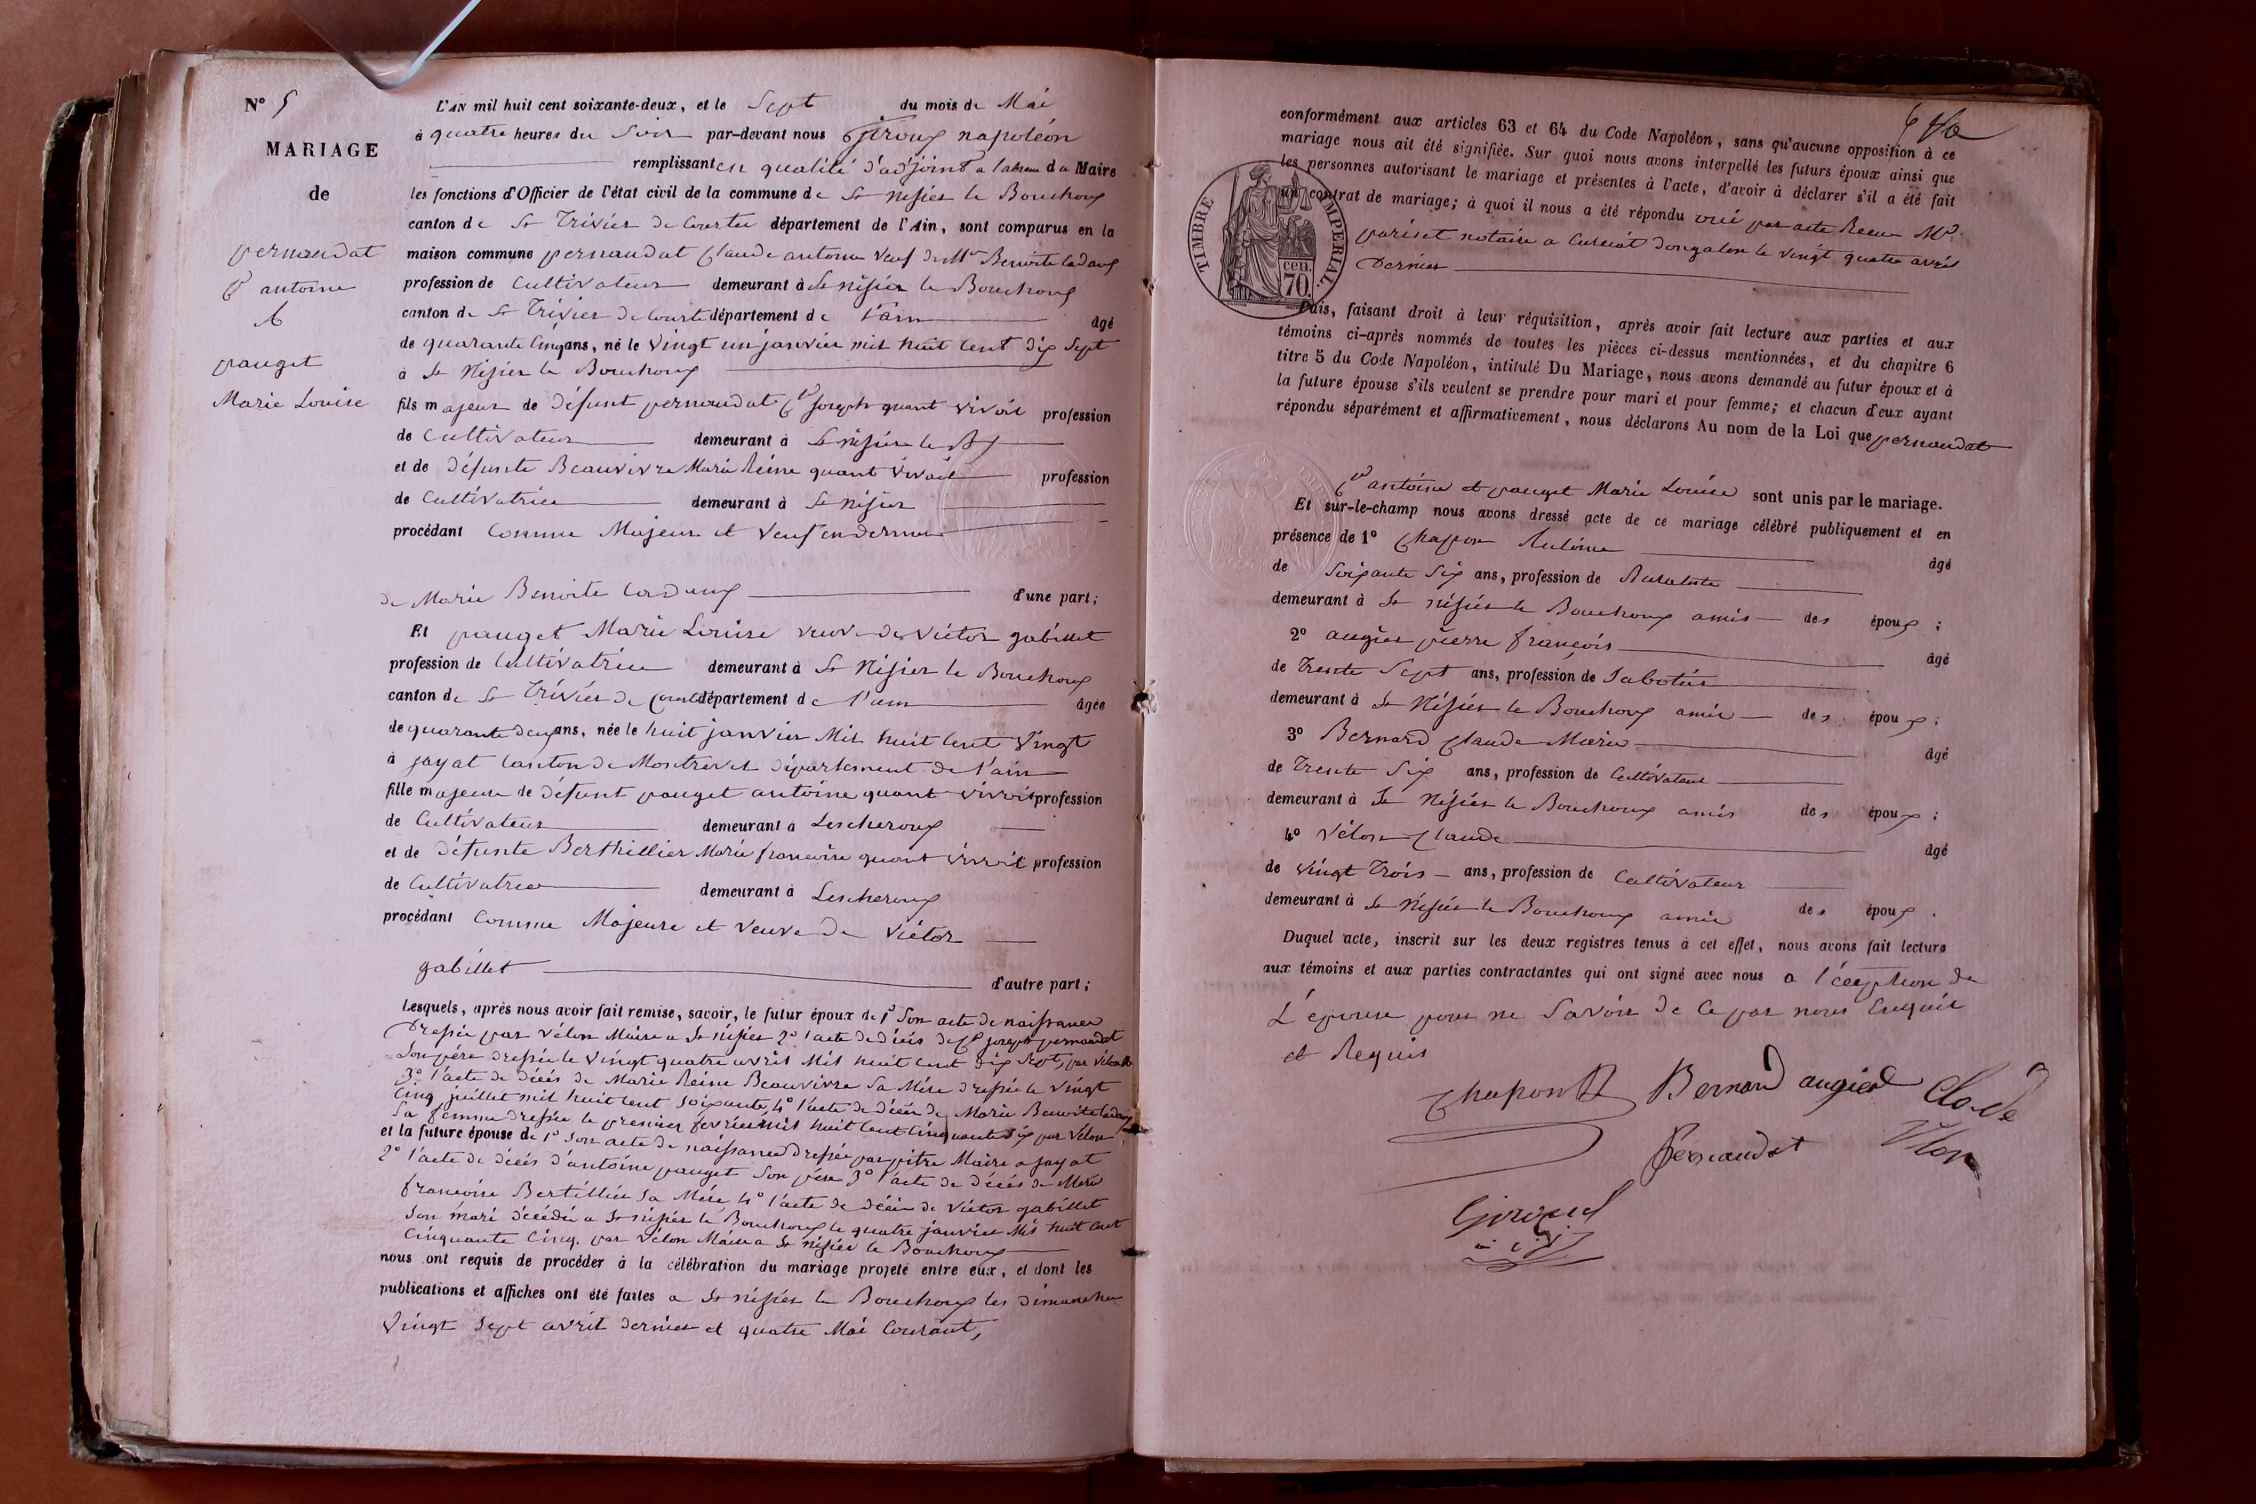 N° 5
MARIAGE
de
pernaudat
Cde antoine
&
pauget
Marie Louise
L'AN mil huit cent soixante-deux, et le Sept du mois de Mai
à quatre heures du Soir par-devant nous Giroux napoléon
remplissant en qualité d'adjoint a l'absence du Maire
les fonctions d'Officier de l'état civil de la commune de St Nisier le Bouchoux
canton de St Trivier de Courtes département de l'Ain, sont comparus en la
maison commune pernaudat Claude antoine veuf de Mie Benoite
profession de Cultivateur demeurant à St nisier le Bouchoux
canton de St Trivier de Courtes département de l'ain âgé
de quarante Cinq ans, né le Vingt un janvier mil huit cent dix Sept
à St Nisier le Bouchoux
fils majeur de défunt pernaudat Cde Joseph quant vivoit profession
de Cultivateur demeurant à St nisier le Bx
et de défunte Beauvivre Marie Reine quant vivoit profession
de Cultivatrice demeurant à St Nisier
procédant Comme Majeur et Veuf en dernier
de Marie Benoite d'une part;
Et pauget Marie Louise veuve de Victor gabillet
profession de Cultivatrice demeurant à St Nisier le Bouchoux
canton de St Trivier de Courtes département de l'ain âgée
de quarante deux ans, née le huit janvier Mil huit Cent Vingt
à jayat Canton de Montrevel département de l'ain
fille majeure de défunt pauget antoine quant vivoit profession
de Cultivateur demeurant à Lescheroux
et de défunte Berthillier Marie francoise quant vivoit profession
de Cultivatrice demeurant à Lescheroux
procédant Comme Majeure et Veuve de Victor
gabillet d'autre part;
Lesquels, après nous avoir fait remise, savoir, le futur époux de 1° Son acte de naissance
Dressée par Vélon Maire a St nisier 2° l'acte de décès de Cde joseph pernaudat
Son père dressée le Vingt quatre avril Mil huit cent dix Sept, par Vélon
3° l'acte de décès de Marie Reine Beauvivre Sa Mère dressée le Vingt
Cinq juillet mil huit Cent Soixante, 4° l'acte de décès de Marie Benoite
Sa femme dressée le premier fevrier mil huit Cent Cinquante Six par Vélon
et la future épouse de 1° Son acte de naissance dressée par pitre Maire a jayat
2° l'acte de décès d'antoine pauget Son père 3° l'acte de décès de Marie
francoise Bertillier Sa Mère 4° l'acte de décès de Victor gabillet
Son mari décédé a St nisier le Bouchoux le quatre janvier Mil huit Cent
Cinquante Cinq. par Vélon Maire a St Nisier le Bouchoux
nous ont requis de procéder à la célébration du mariage projeté entre eux, et dont les
publications et affiches ont été faites a St nisier le Bouchoux les dimanches
Vingt Sept avril dernier et quatre Mai Courant,
conformément aux articles 63 et 64 du Code Napoléon, sans qu'aucune opposition à ce
mariage nous ait été signifiée. Sur quoi nous avons interpellé les futurs époux ainsi que
les personnes autorisant le mariage et présentes à l'acte, d'avoir à déclarer s'il a été fait
un contrat de mariage; à quoi il nous a été répondu oui par acte Recu Me
pariset notaire a Curciat dongalon le vingt quatre avril
Dernier
TIMBRE IMPERIAL.
cen.
70.
Puis, faisant droit à leur réquisition, après avoir fait lecture aux parties et aux
témoins ci-après nommés de toutes les pièces ci-dessus mentionnées, et du chapitre 6
titre 5 du Code Napoléon, intitulé Du Mariage, nous avons demandé au futur époux et à
la future épouse s'ils veulent se prendre pour mari et pour femme; et chacun d'eux ayant
répondu séparément et affirmativement, nous déclarons Au nom de la Loi que pernaudat
Cde antoine et pauget Marie Louise sont unis par le mariage.
Et sur-le-champ nous avons dressé acte de ce mariage célébré publiquement et en
présence de 1° Chapon Antoine âgé
de Soixante Six ans, profession de
demeurant à St nisier le Bouchoux amis des époux;
2° augier pierre françois âgé
de Trente Sept ans, profession de Sabotier
demeurant à St Nisier le Bouchoux amis des époux;
3° Bernard Claude Marie âgé
de Trente Six ans, profession de Cultivateur
demeurant à St Nisier le Bouchoux amis des époux;
4° Vélon Claude âgé
de Vingt Trois ans, profession de Cultivateur
demeurant à St Nisier le Bouchoux amis des époux.
Duquel acte, inscrit sur les deux registres tenus à cet effet, nous avons fait lecture
aux témoins et aux parties contractantes qui ont signé avec nous a l'éception de
L'épouse pour ne Savoir de Ce par nous Enquis
et Requis
Chapon Bernard augier Clade
Vlon
pernaudat
Giroud